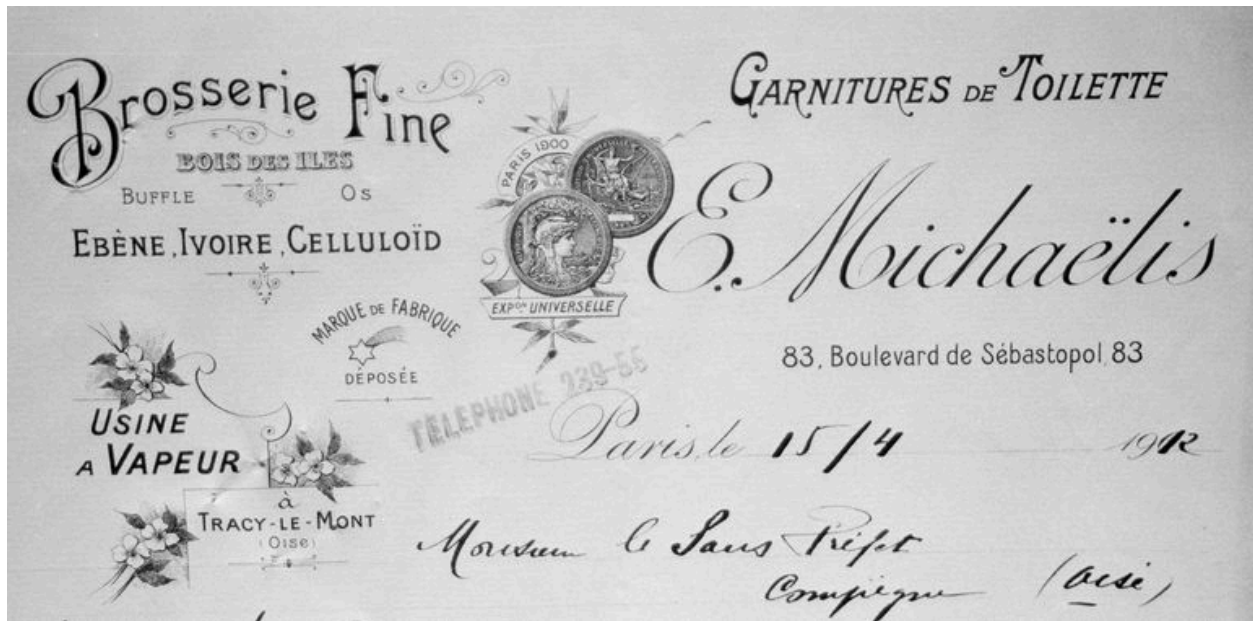 Brosserie Fine
BOIS DES ILES
BUFFLE OS
EBÈNE, IVOIRE, CELLULOÏD
MARQUE DE FABRIQUE
DÉPOSÉE
USINE
A VAPEUR
à
TRACY-LE-MONT
(OISE)
PARIS 1900
EXPON UNIVERSELLE
GARNITURES DE TOILETTE
E. Michaëlis
83, Boulevard de Sébastopol, 83
TÉLÉPHONE 239-56
Paris, le 15/4 1912
Monsieur le Sous Préfet
Compiègne (Oise)